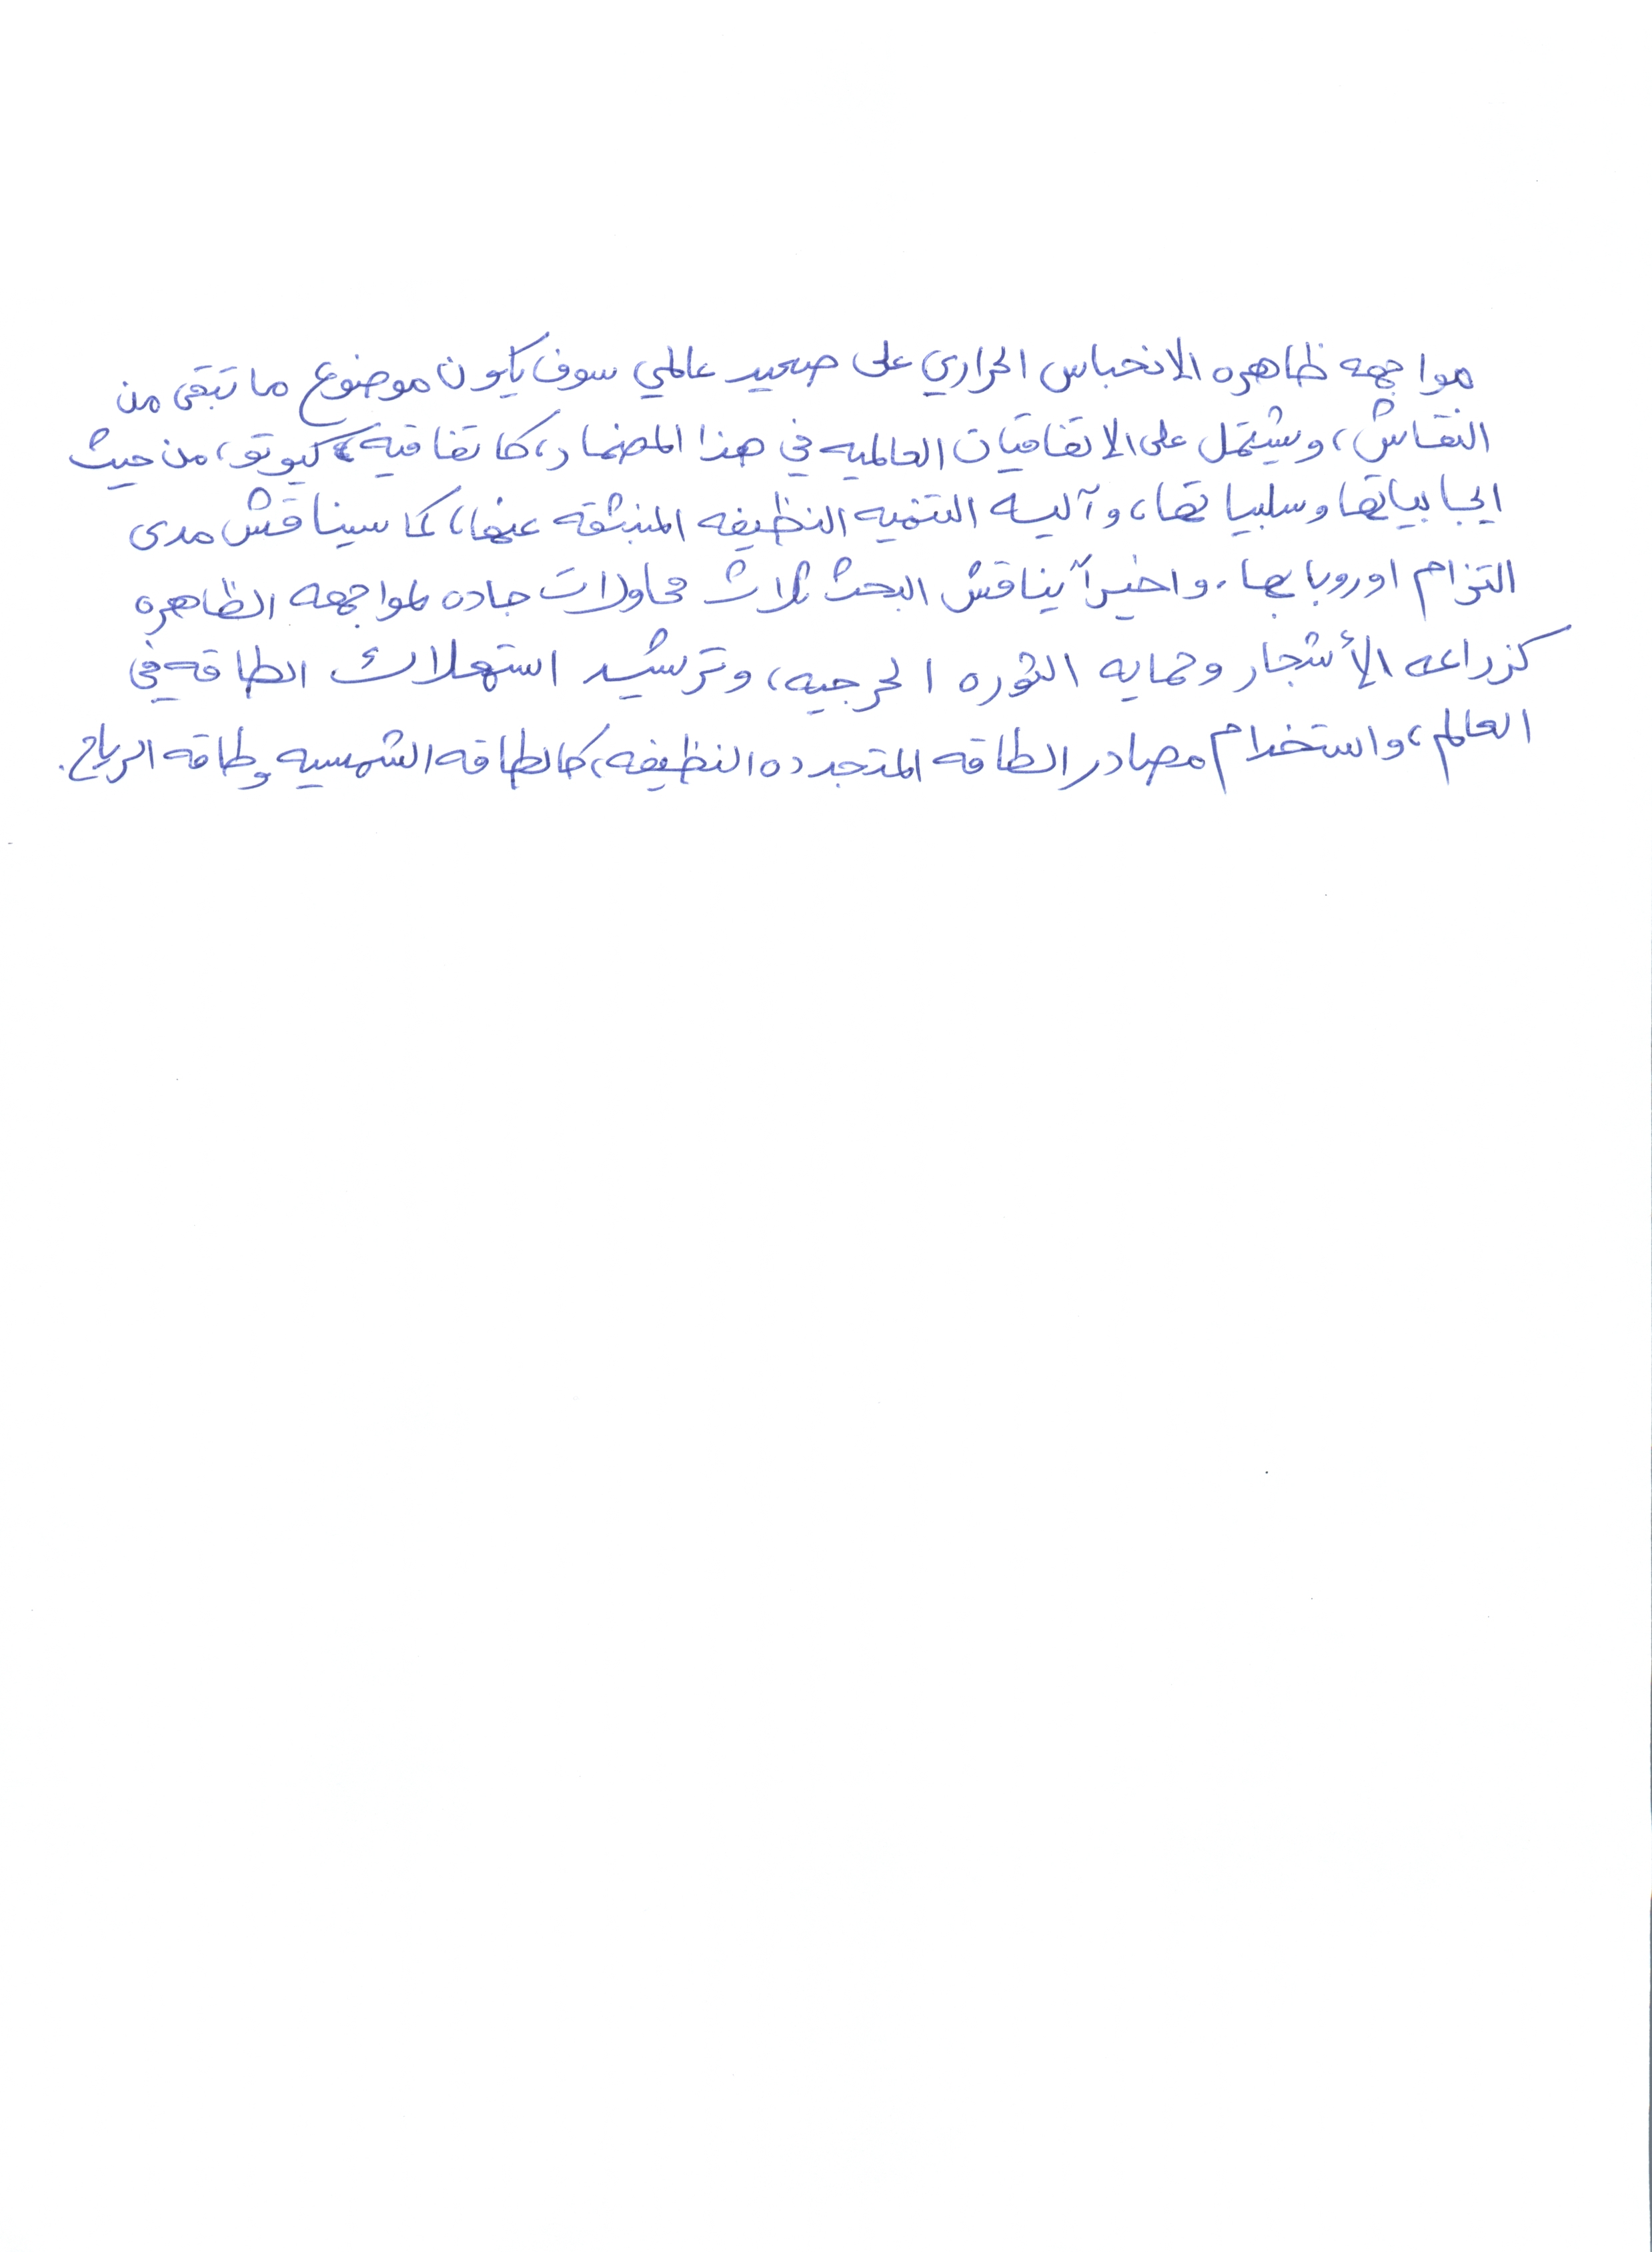 مواجهه ظاهره الانحباس الحراري على صعيد عالمي سوف يكون موضوع ما تبقى من
النقاش، ويشتمل على الاتفاقيات العالميه في هذا المضمار، كاتفاقية كيوتو، من حيث
ايجابياتها وسلبياتها، وآليه التنميه النظيفه المنبثقه عنها، كما سيناقش مدى
التزام اوروبا بها. واخيراً يناقش البحث ثلاث محاولات جاده لمواجهه الظاهره
كزراعه الأشجار وحمايه الثوره الحرجيه، وترشيد استهلاك الطاقه في
العالم، واستخدام مصادر الطاقه المتجدده النظيفه، كالطاقه الشمسيه وطاقه الرياح.